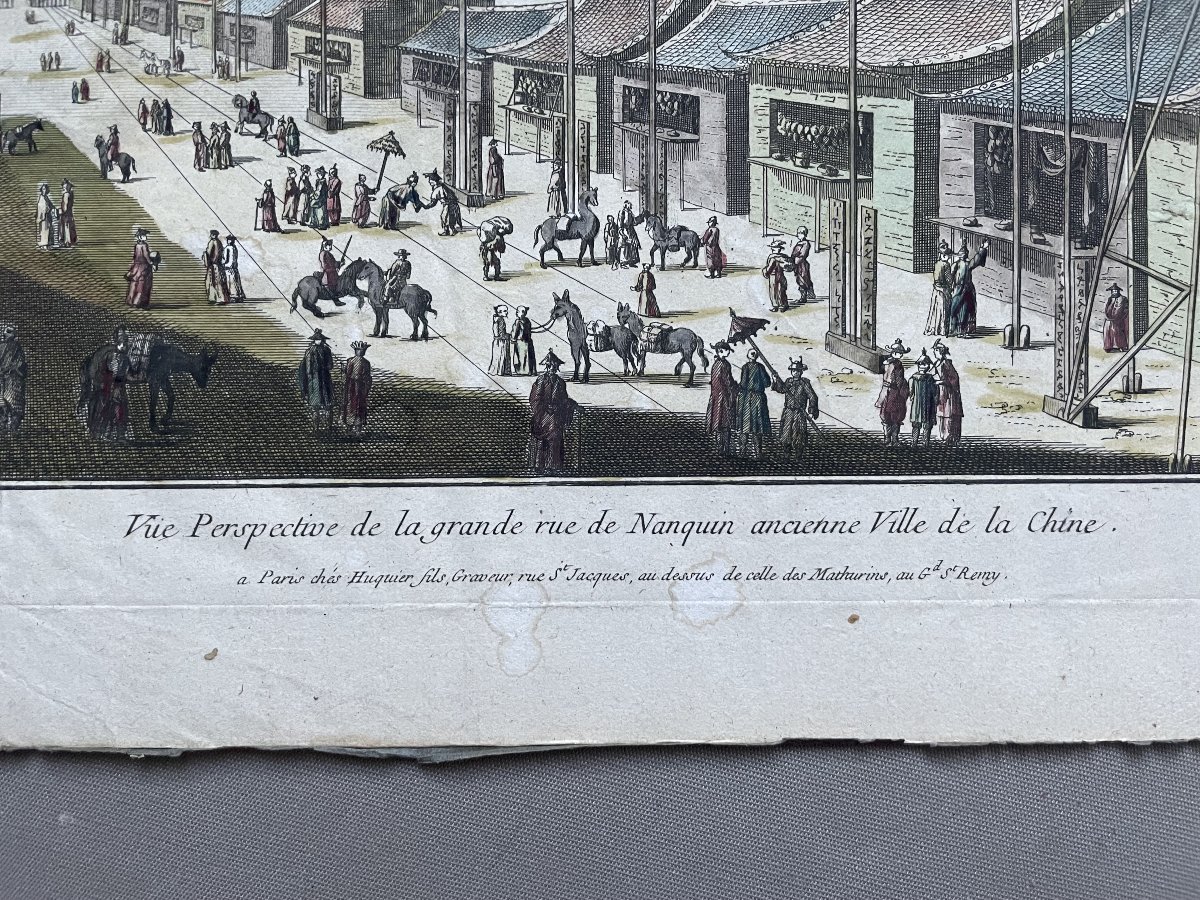 Vüe Perspective de la grande rue de Nanquin ancienne Ville de la Chine.
a Paris chés Huquier fils, Graveur, rue St Jacques, au dessus de celle des Mathurins, au Gd St Remy.